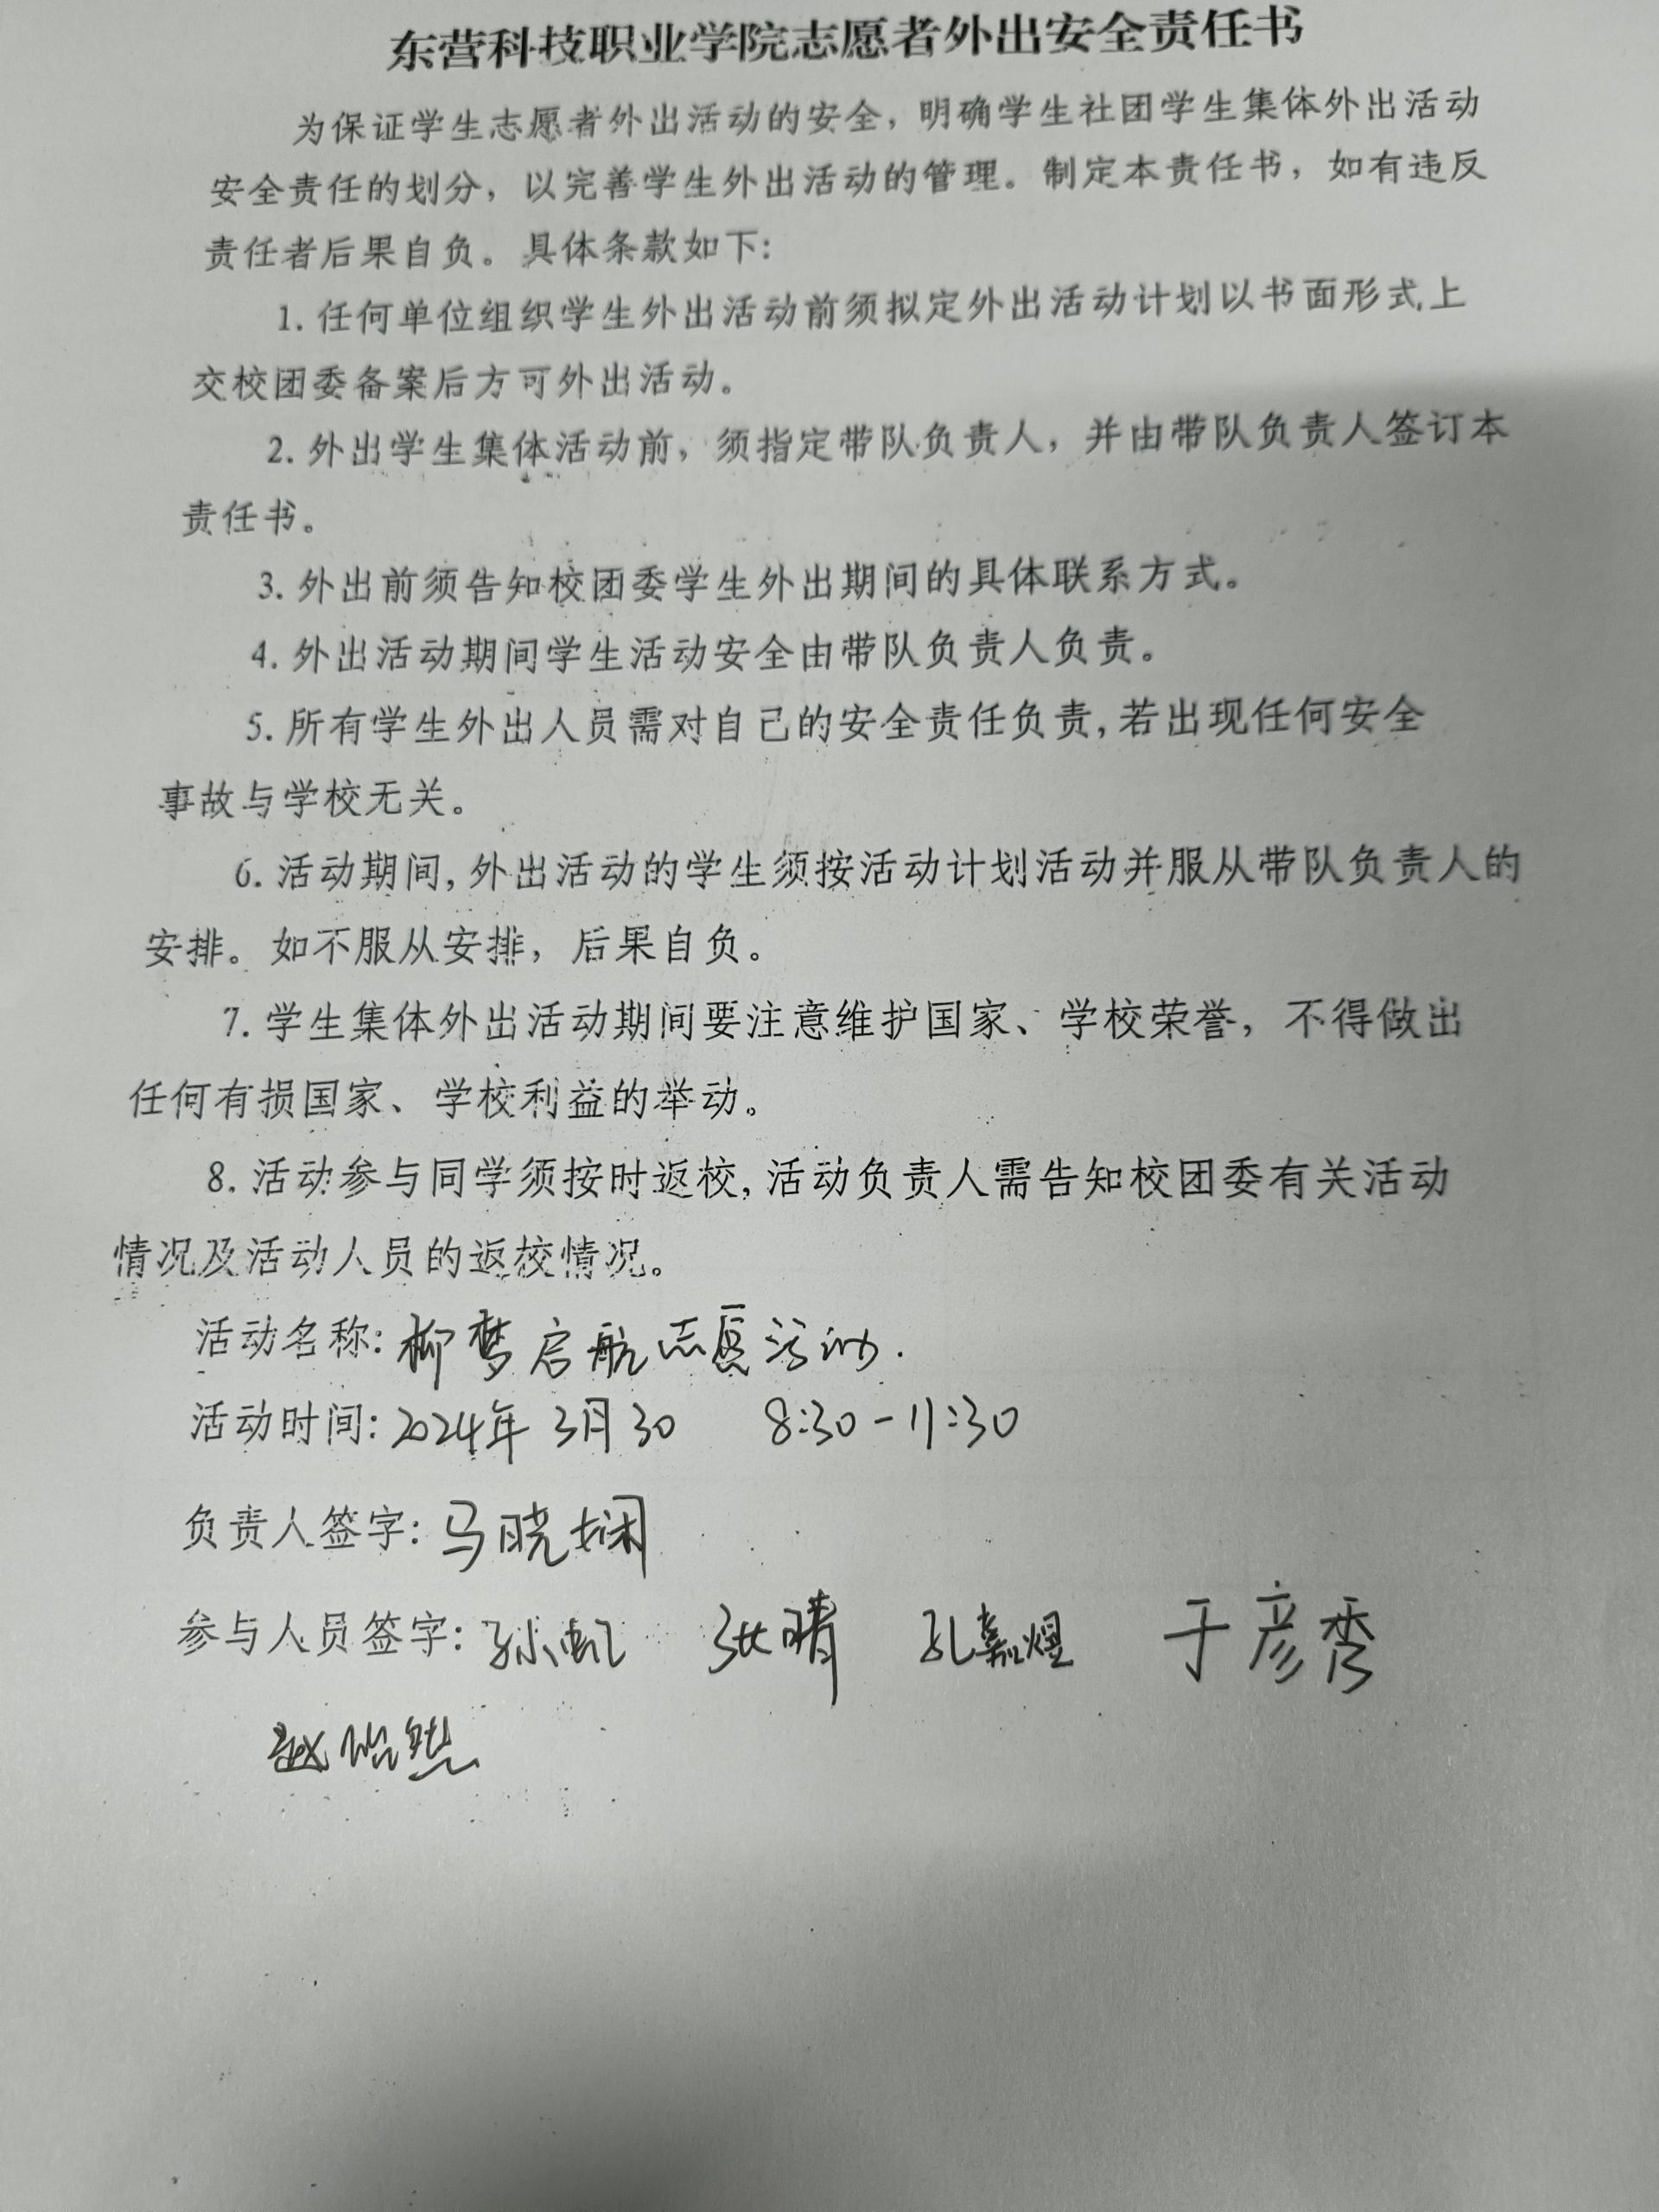 东营科技职业学院志愿者外出安全责任书
为保证学生志愿者外出活动的安全，明确学生社团学生集体外出活动
安全责任的划分，以完善学生外出活动的管理。制定本责任书，如有违反
责任者后果自负。具体条款如下：
1.任何单位组织学生外出活动前须拟定外出活动计划以书面形式上
交校团委备案后方可外出活动。
2.外出学生集体活动前，须指定带队负责人，并由带队负责人签订本
责任书。
3.外出前须告知校团委学生外出期间的具体联系方式。
4.外出活动期间学生活动安全由带队负责人负责。
5.所有学生外出人员需对自己的安全责任负责，若出现任何安全
事故与学校无关。
6.活动期间，外出活动的学生须按活动计划活动并服从带队负责人的
安排。如不服从安排，后果自负。
7.学生集体外出活动期间要注意维护国家、学校荣誉，不得做出
任何有损国家、学校利益的举动。
8.活动参与同学须按时返校，活动负责人需告知校团委有关活动
情况及活动人员的返校情况。
活动名称：柳梦启航志愿活动.
活动时间：2024年3月30 8:30-11:30
负责人签字：马晓娴
参与人员签字： 张晴 孔嘉煜 于彦秀
赵怡然